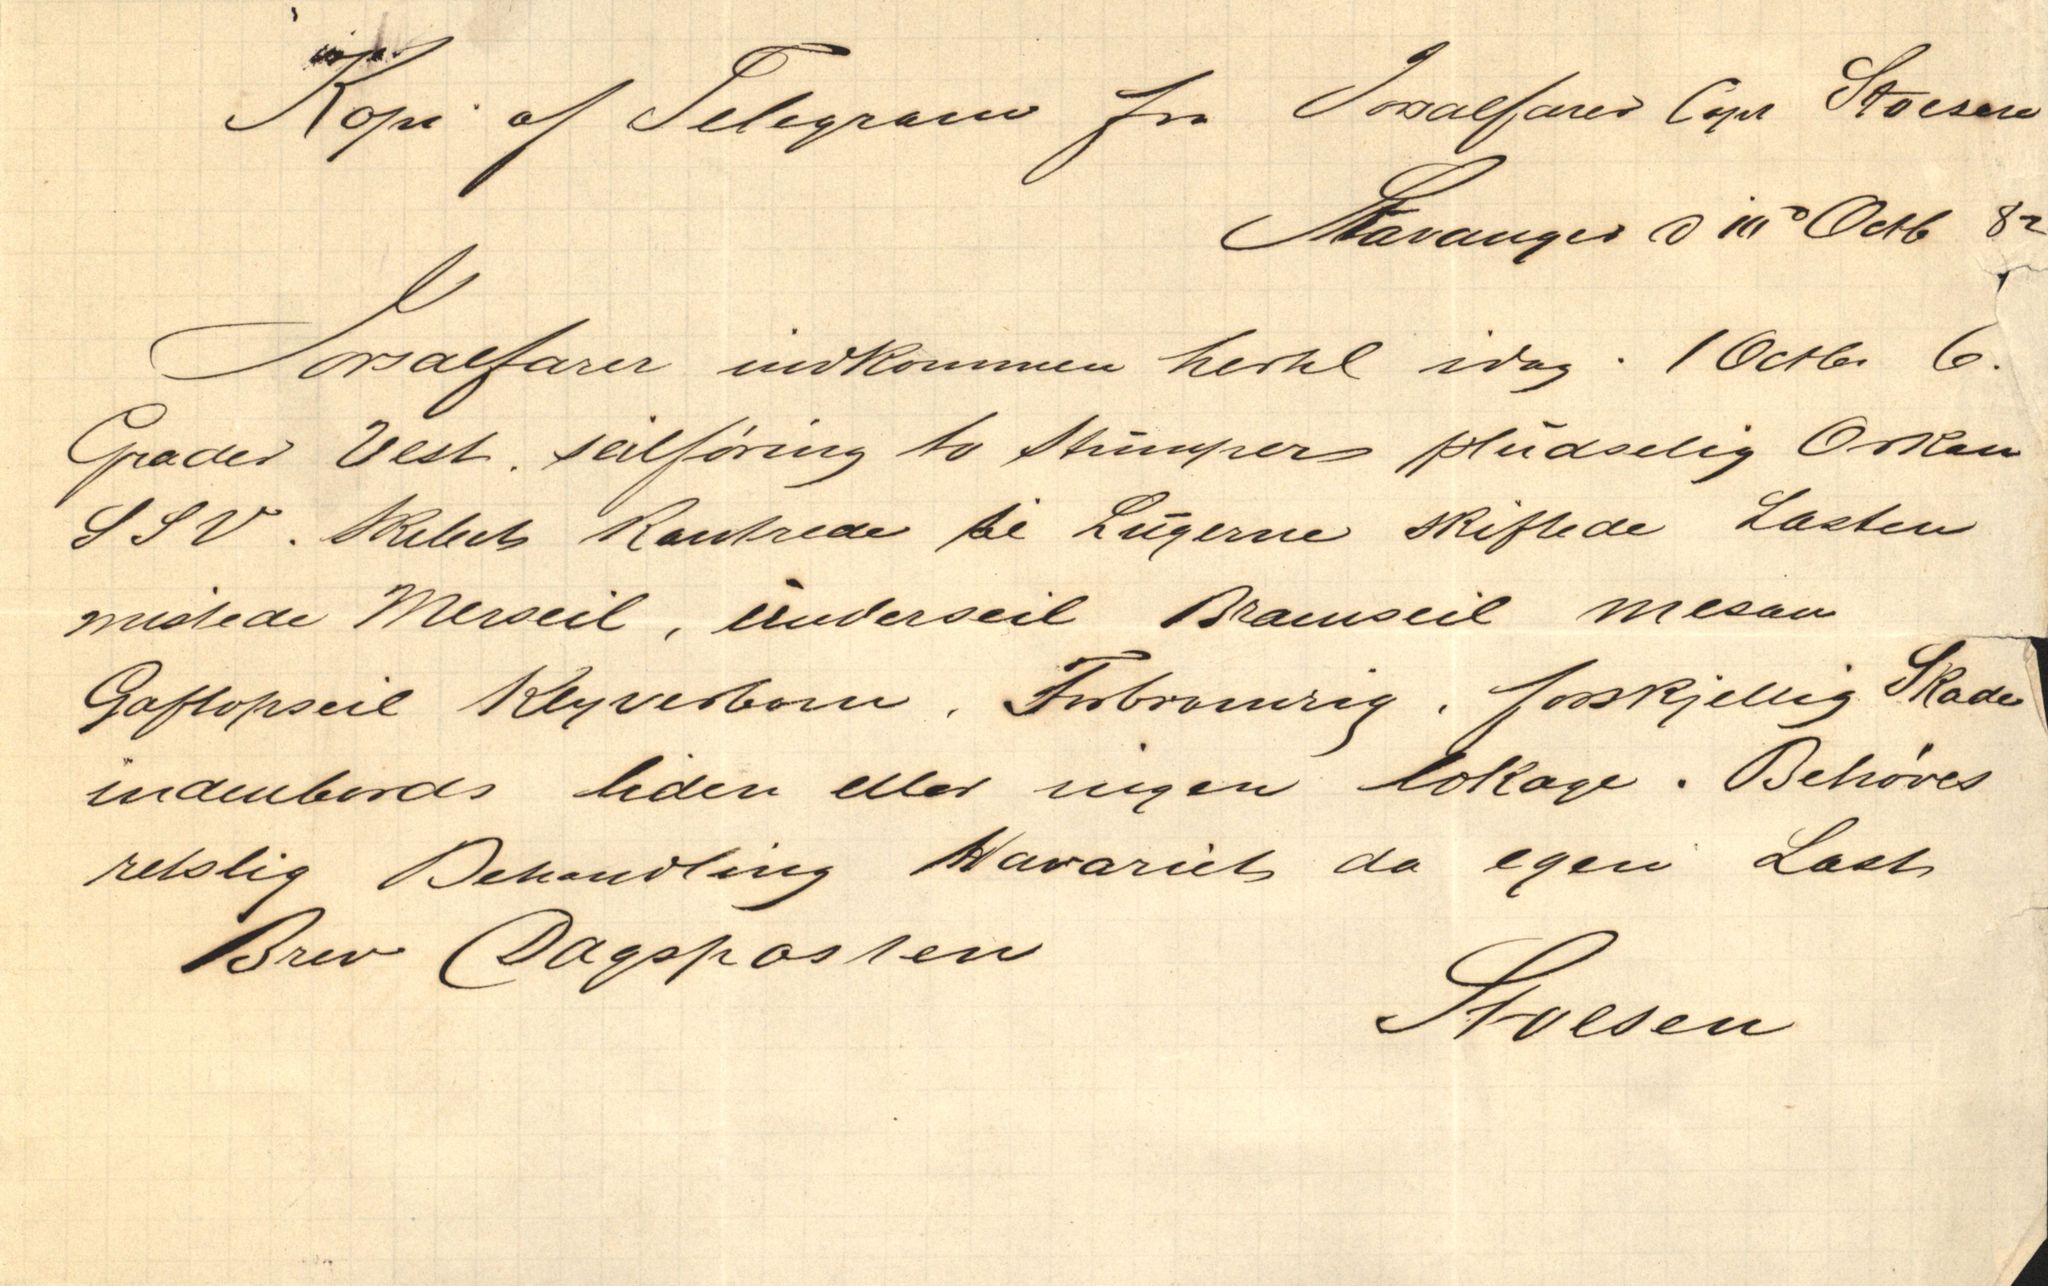 Kopi af Telegram fra Jorsalfarer Capt Stoesen
Stavanger d Octb 82
Jorsalfarer indkommen hertil idag. 1 Octbr 6.
Grader Vest. seilføring to Stumper pludselig Orkan
SSV. Skibet kantrede til Lugerne skiftede Lasten
mistede Merseil, underseil Bramseil mesan
Gaftopseil Klyverbom. Forbramrig. forskjellig Skade
indenbords liden eller ingen lækage. Behøves
retslig Behandling Havariet da egen Last
Brev Dagsposten
Stoesen